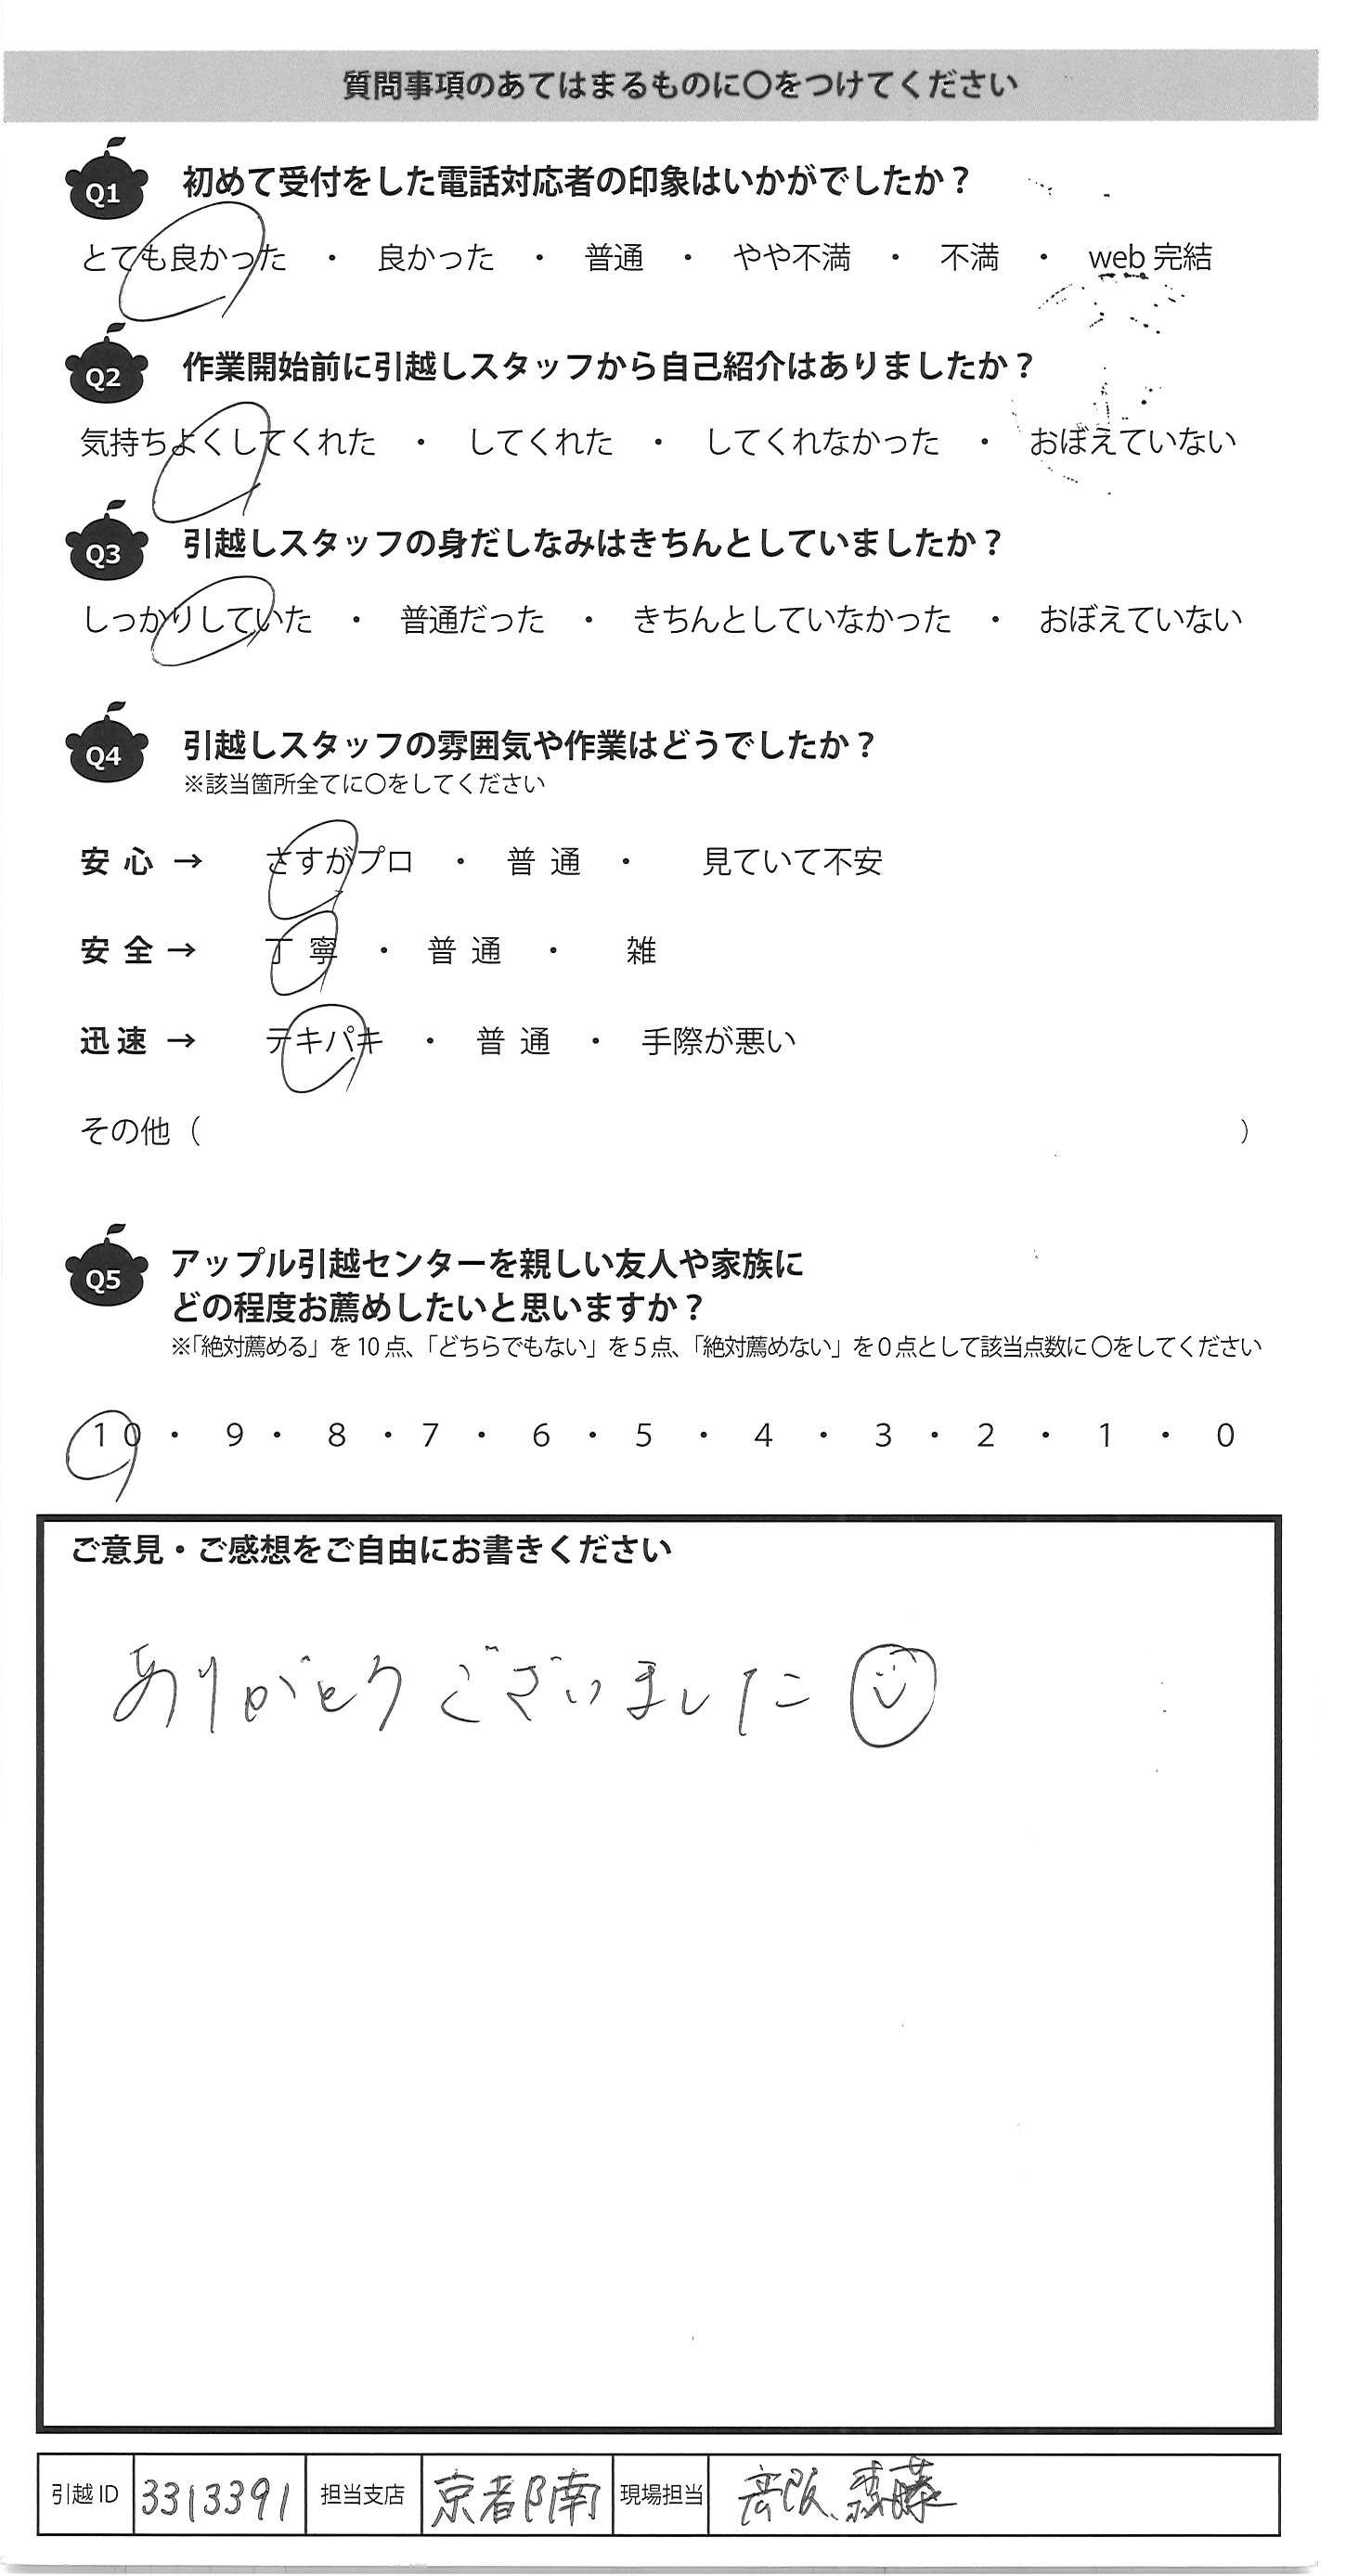 質問事項のあてはまるものに〇をつけてください
Q1 初めて受付をした電話対応者の印象はいかがでしたか？
とても良かった ・ 良かった ・ 普通 ・ やや不満 ・ 不満 ・ web完結
Q2 作業開始前に引越しスタッフから自己紹介はありましたか？
気持ちよくしてくれた ・ してくれた ・ してくれなかった ・ おぼえていない
Q3 引越しスタッフの身だしなみはきちんとしていましたか？
しっかりしていた ・ 普通だった ・ きちんとしていなかった ・ おぼえていない
Q4 引越しスタッフの雰囲気や作業はどうでしたか？
※該当箇所全てに〇をしてください
安心 → さすがプロ ・ 普通 ・ 見ていて不安
安全 → 丁寧 ・ 普通 ・ 雑
迅速 → テキパキ ・ 普通 ・ 手際が悪い
その他（ ）
Q5 アップル引越センターを親しい友人や家族に
どの程度お薦めしたいと思いますか？
※「絶対薦める」を10点、「どちらでもない」を5点、「絶対薦めない」を0点として該当点数に〇をしてください
10 ・ 9 ・ 8 ・ 7 ・ 6 ・ 5 ・ 4 ・ 3 ・ 2 ・ 1 ・ 0
ご意見・ご感想をご自由にお書きください
ありがとうございました
引越ID 3313391 担当支店 京都南 現場担当